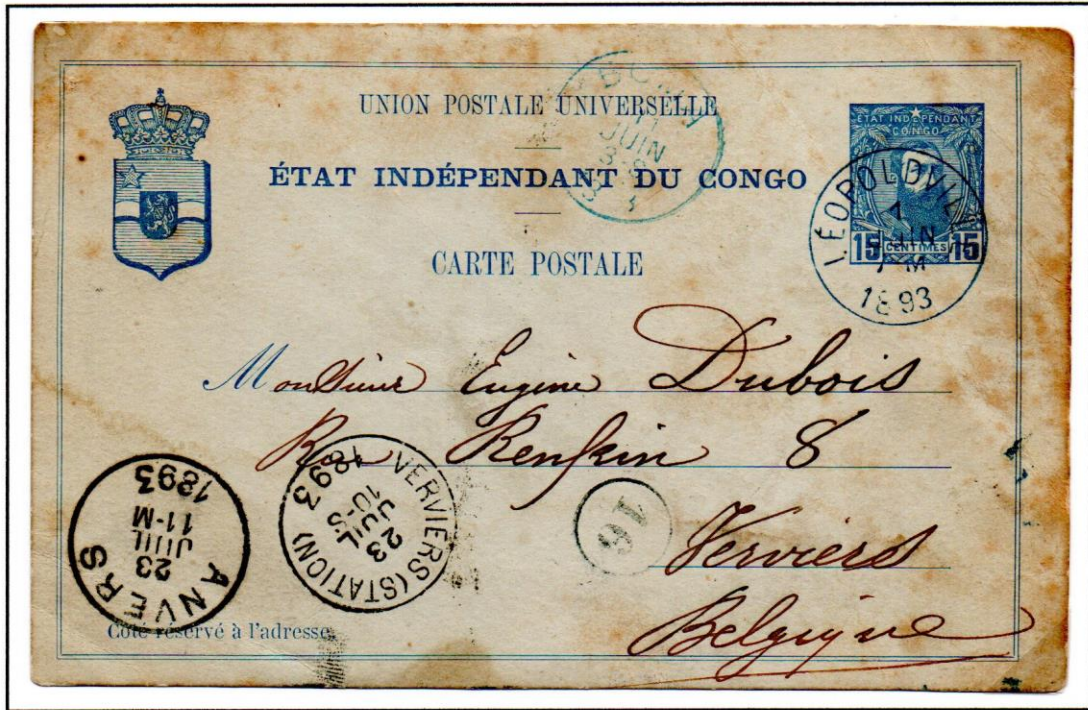 UNION POSTALE UNIVERSELLE
ÉTAT INDÉPENDANT DU CONGO
CARTE POSTALE
ÉTAT INDÉPENDANT
CONGO
15 CENTIMES 15
LÉOPOLDVIL
JUIN
1893
JUIN
Monsieur Eugène Dubois
Rue Renkin 8
Verviers
Belgique
VERVIERS (STATION)
23
JUIL
10-S
1893
ANVERS
23
JUIL
11-M
1893
16
Côté réservé à l'adresse.